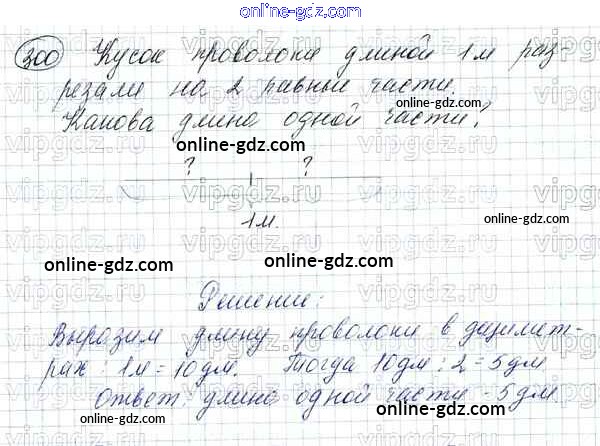 online-gdz.com
300 Кусок проволоки длиной 1 м раз-
резали на 2 равные части.
online-gdz.com
Какова длина одной части?
online-gdz.com
? ?
1 м.
online-gdz.com
online-gdz.com
online-gdz.com
Решение:
Выразим длину проволоки в децимет-
рах: 1м = 10 дм. Тогда 10 дм : 2 = 5 дм
Ответ: длина одной части - 5 дм.
online-gdz.com
online-gdz.com
vipgdz.ru